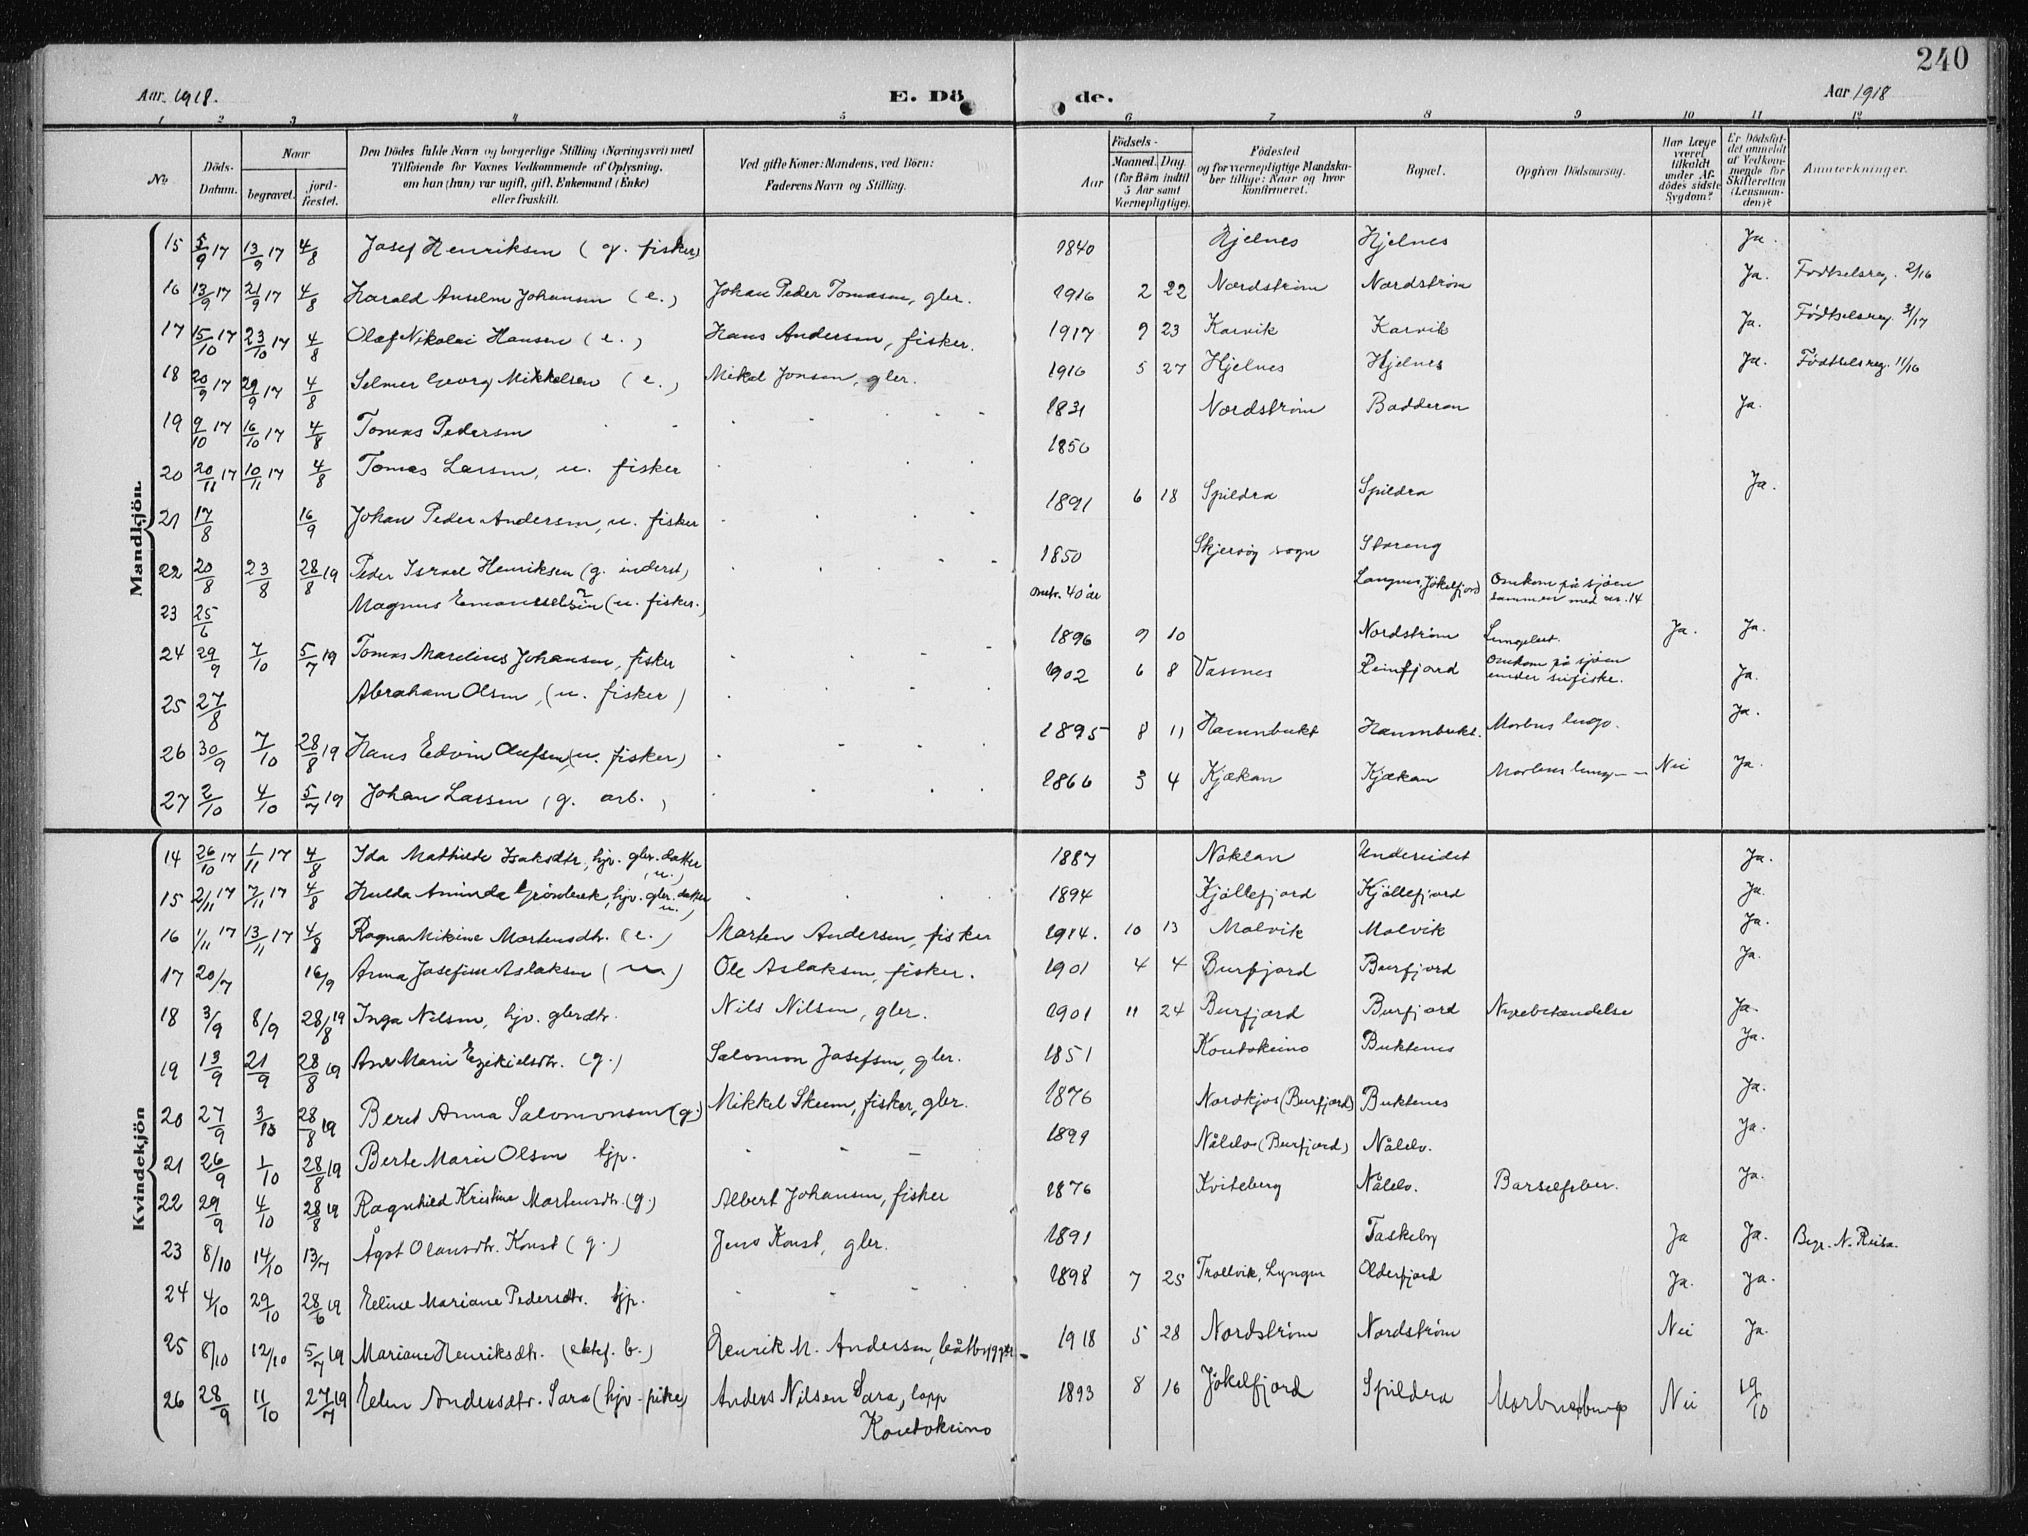 240
Aar 1918. E. Dö de. Aar 1918
1 2 3 4 5 6 7 8 9 10 11 12
No. Döds-Datum. Naar begravet. jord-fæstet. Den Dödes fulde Navn og borgerlige Stilling (Næringsvei) med Tilföiende for Voxnes Vedkommende af Oplysning, om han (hun) var ugift, gift, Enkemand (Enke) eller fraskilt. Ved gifte Koner: Mandens, ved Börn: Faderens Navn og Stilling. Födsels- Aar Maaned. Dag. (for Börn indtil 5 Aar samt Værnepligtige). Födested og for værnepligtige Mandskaber tillige: Naar og hvor konfirmeret. Bopæl. Opgiven Dödsaarsag. Har Læge været tilkaldt under Afdödes sidste Sygdom? Er Dödsfaldet anmeldt af Vedkommende for Skifteretten (Lensmanden)? Anmerkninger.
Mandkjön.
15 5/9 17 13/9 17 4/8 Josef Henriksen (g. fisker) 1840 Hjelnes Hjelnes Ja.
16 13/9 17 21/9 17 4/8 Harald Anselm Johansen (e.) Johan Peder Tomasen, gbr. 1916 2 22 Nordstrøm Nordstrøm Ja. Fødselsreg. 2/16
17 15/10 17 23/10 17 4/8 Olaf Nikolai Hansen (e.) Hans Andersen, fisker. 1917 9 23 Karvik Karvik Ja. Fødselsreg. 31/17
18 20/9 17 29/9 17 4/8 Selmer Georg Mikkelsen (e.) Mikel Jonsen, gbr. 1916 5 27 Hjelnes Hjelnes Ja. Fødselsreg. 11/16
19 9/10 17 16/10 17 4/8 Tomas Pedersen 1831 Nordstrøm Badderen Ja.
20 20/11 17 10/11 17 4/8 Tomas Larsen, u. fisker 1850
21 17/8 16/9 Johan Peder Andersen, u. fisker 1891 6 18 Spildra Spildra Ja.
22 20/8 23/8 28/8 19 Peder Israel Henriksen (g. inderst) 1850 Skjervøy sogn Storeng
23 25/6 Magnus Emanuelsen (u. fisker.) omtr. 40 år Langnes, Jøkelfjord Omkom på sjøen sammen med nr. 14
24 29/9 7/10 5/7 19 Tomas Marelius Johansen, fisker 1896 9 10 Nordstrøm Lungebet. Ja. Ja.
25 27/8 Abraham Olsen, (u. fisker) 1902 6 8 Vassnes Reinfjord Omkom på sjøen under seifiske. Ja.
26 30/9 7/10 28/8 19 Hans Edvin Olufsen (u. fisker) 1895 8 11 Hamnbukt Hamnbukt. Morbus lungo. Ja.
27 2/10 4/10 5/7 19 Johan Larsen (g. arb.) 1866 3 4 Kjækan Kjækan Morbus lung-- Nei Ja.
Kvindekjön
14 26/10 17 1/11 17 4/8 Ida Mathilde Isaksdtr, hjv. gbr. datter (u.) 1887 Noklan Undereidet Ja.
15 2/11 17 7/11 17 4/8 Hulda Aminda Grønbeck, hjv. gbr. datter u.) 1894 Kjøllefjord Kjøllefjord Ja.
16 1/11 17 13/11 17 4/8 Ragna Mikine Mortensdtr. (e.) Morten Andersen, fisker 1914. 10 13 Malvik Malvik Ja.
17 20/7 16/9 Anna Josefine Aslaksen (u) Ole Aslaksen, fisker. 1901 4 4 Burfjord Burfjord Ja.
18 3/9 8/9 28/8 19 Inga Nilsen, hjv. gbrdtr. Nils Nilsen, gbr. 1901 11 24 Burfjord Burfjord Nyrebetændelse Ja.
19 13/9 21/9 28/8 19 Ane Marie Ezekielsdtr. (g.) Salomon Josefsen, gbr. 1851 Koutokeino Buktenes Ja.
20 27/9 3/10 28/8 19 Beret Anna Salomonsen (g.) Mikkel Skum, fisker, gbr. 1876 Nordkjos (Burfjord) Buktenes Ja.
21 26/9 1/10 28/8 19 Berte Marie Olsen tjp. 1899 Nålelv (Burfjord) Nålelv. Ja.
22 29/9 4/10 28/8 19 Ragnhild Kristine Mortensdtr. (g.) Albert Johansen, fisker 1876 Kviteberg Nålelv. Barselfeber. Ja.
23 8/10 14/10 13/7 Ågot Olausdtr. Konst (g.) Jens Konst, gbr. 1891 Taskeby Ja Ja. Begr. N. Reisa.
24 4/10 29/10 28/6 19 Eeline Mariane Pedersdtr. tjp. 1898 7 25 Trollvik, Lyngen Olderfjord Ja. Ja.
25 8/10 12/10 5/7 19 Mariane Henriksdtr. (ektef. b.) Henrik M. Andersen, båtbygger 1918 5 28 Nordstrøm Nordstrøm Nei Ja.
26 28/9 11/10 27/7 19 Elen Andersdtr. Sara (hjv. pike) Anders Nilsen Sara, lapp Koutokeino 1893 8 16 Jøkelfjord Spildra Nei 19/10